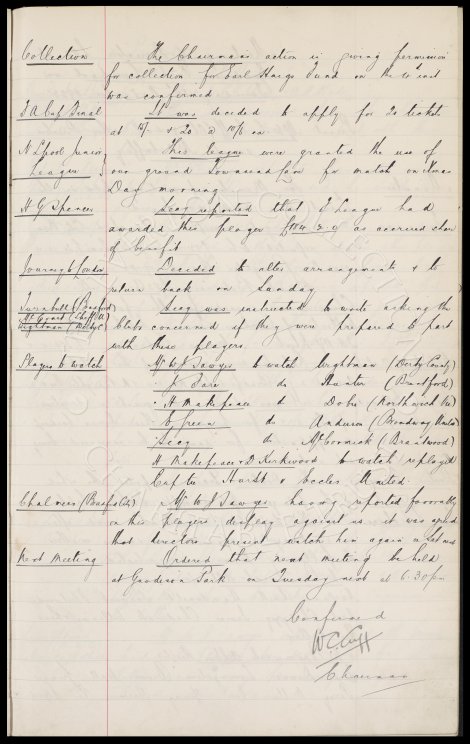 Collection The Chairmans action in giving permission
for collection for Earl Haigs Fund on the 10 inst
was confirmed
F A Cup Final It was decided to apply for 20 tickets
at & 20 @ 10/6 ea
N L'pool Junior This league were granted the use of
League our ground Townsend Lane for match on Xmas
Day morning
H G Spencer Secy reported that F League had
awarded this player as accrued share
of benefit
Journey to London Decided to alter arrangements & to
return back on Sunday
Turnbull (Bradford) Secy was instructed to write asking the
(Sheff U) clubs concerned if they were prepared to part
Wightman with these players.
Players to watch Mr W J Sawyer to watch Wightman (Derby County)
" J. do Hunter (Brentford)
" H Makepeace to Dobs (Northwich Vic)
" Green do Anderson (Broadway United)
" Secy do McCormick (Brantwood)
H Makepeace & D Kirkwood to watch replayed
Cup tie Hurst v Eccles United.
Chalmers (Bradford City) Mr W J Sawyer having reported favorably
on this players display against us it was agreed
that directors present watch him again
Next Meeting Ordered that next meeting be held
at Goodison Park on Tuesday next at 6.30pm
Confirmed
W C Cuff
Chairman